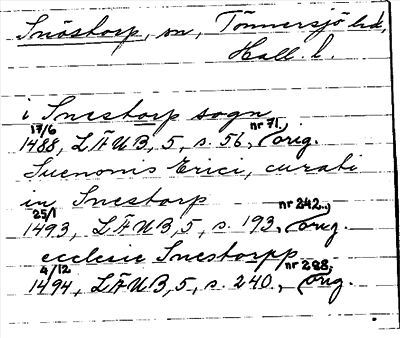 Snöstorp, sn, Tönnersjö hd,
Hall. l.
i Snestorp sogn
17/6 1488, LÄUB, 5, s. 56, nr 71, orig.
Suenonis Erici, curati
in Snestorp
25/1 1493, LÄUB, 5, s. 193, nr 242, orig.
ecclesie Snestorpp
4/12 1494, LÄUB, 5, s. 240, nr 298, orig.